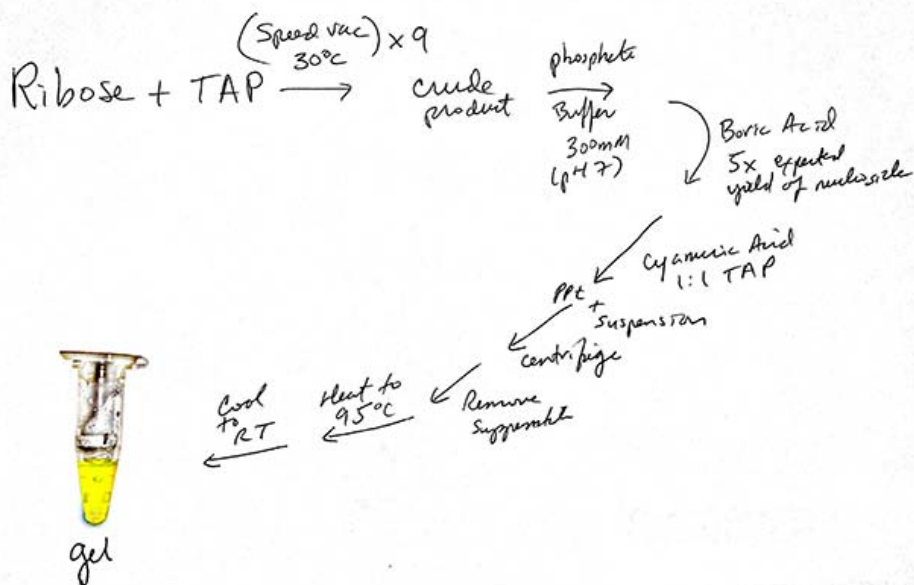 (Speed vac
30°C) x 9
Ribose + TAP
crude
product
phosphate
Buffer
300mM
(pH 7)
Boric Acid
5x expected
yield of nucleoside
Cyanuric Acid
1:1 TAP
PPt
+
Suspension
Centrifige
Remove
Heat to
95°C
Cool
to
RT
gel